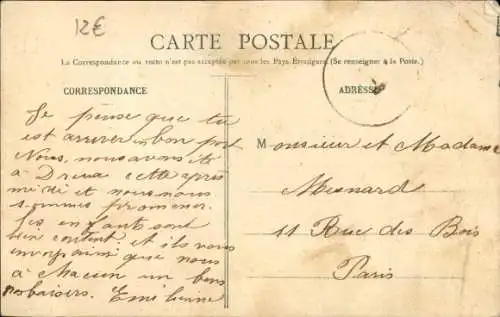 12€
CARTE POSTALE
La Correspondance au recto n'est pas acceptée par tous les Pays Étrangers. (Se renseigner à la Poste.)
CORRESPONDANCE
ADRESSE
Je pense que tu
est arriver en bon port
Nous, nous avons été
à Dreux cette après
midi et nous nous
sommes promener.
les enfants sont
bien content et ils vous
envoi ainsi que nous
à chacun un bons
gros baisers. Emilienne
Monsieur et Madame
Mesnard
11 Rue des Bois
Paris